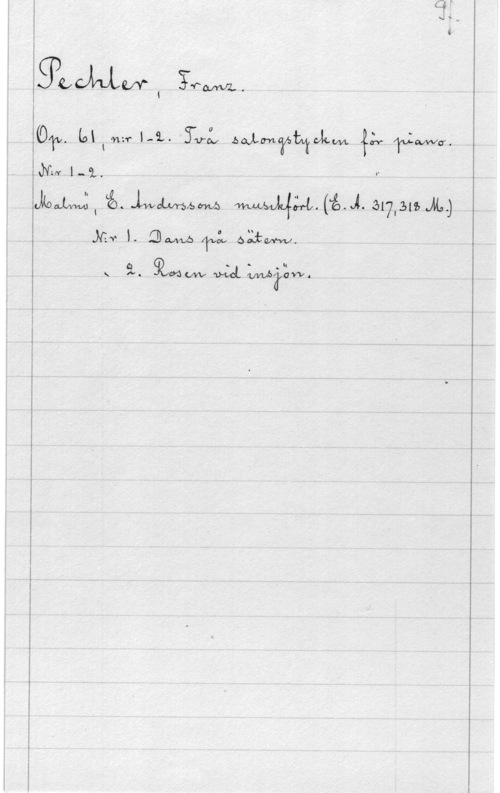 Pechler, Franz.
Op. 61, n:r 1-2. Två salongstycken för piano.
N:r 1-2.
Malmö, E. Anderssons musikförl. (E. A. 317, 318 M.)
N:r 1. Dans på sätern.
" 2. Rosen vid insjön.